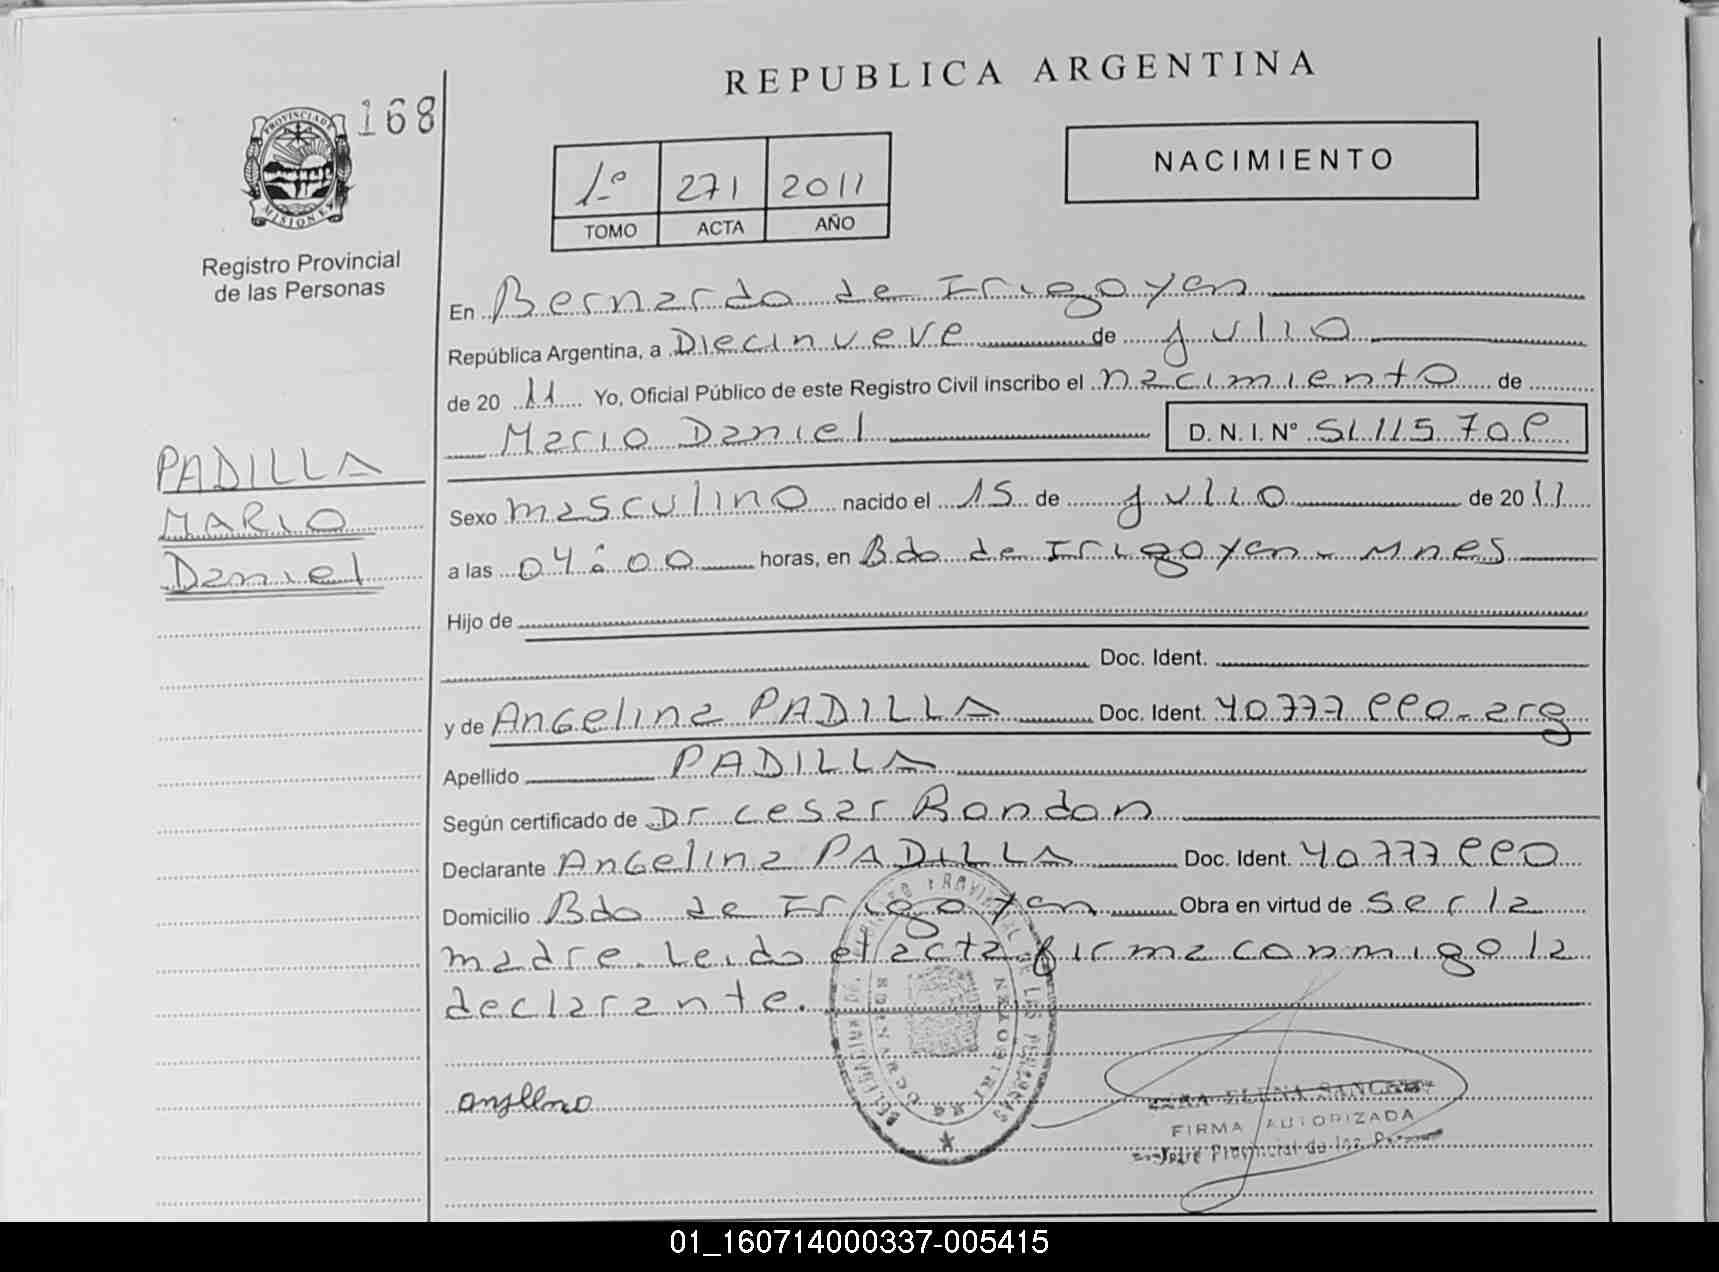 REPUBLICA ARGENTINA
168
PROVINCIA DE MISIONES
Registro Provincial
de las Personas
NACIMIENTO
1º 271 2011
TOMO ACTA AÑO
En Bernardo de Irigoyen
República Argentina, a Diecinueve de Julio
de 20 11 Yo, Oficial Público de este Registro Civil inscribo el nacimiento de
Mario Daniel D. N. I. Nº 51.115.708
PADILLA
MARIO
Daniel
Sexo masculino nacido el 15 de Julio de 20 11
a las 04:00 horas, en Bdo de Irigoyen - Mnes
Hijo de
Doc. Ident.
y de Angelina PADILLA Doc. Ident. 40.777.880-arg
Apellido PADILLA
Según certificado de Dr Cesar Rondon
Declarante Angelina PADILLA Doc. Ident. 40.777.880
Domicilio Bdo de Irigoyen Obra en virtud de ser la
madre. Leido el acta firma conmigo la
declarante.
ELENA
FIRMA AUTORIZADA
01_160714000337-005415